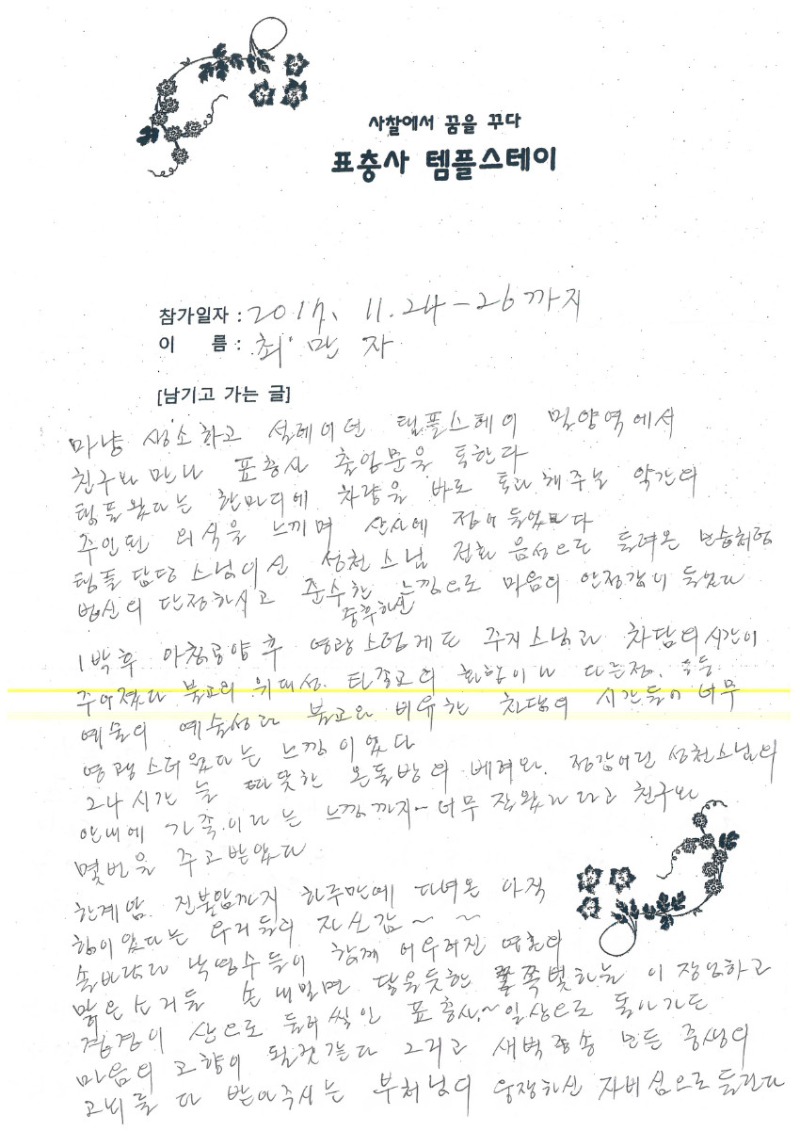 사찰에서 꿈을 꾸다
표충사 템플스테이
참가일자 : 2017. 11. 24 - 26까지
이 름 : 최만자
[남기고 가는 글]
마냥 생소하고 설레이던 템플스테이 밀양역에서
친구와 만나 표충사 출입문을 톡한다
템플왔다는 한마디에 차량을 바로 통과해주는 약간의
주인된 의식을 느끼며 산사에 접어 들었다
템플 담당 스님이신 성천스님 전화 음성으로 들려온 모습처럼
법신의 단정하시고 준수한 느낌으로 마음의 안정감이 들었다
중후하신
1박후 아침공양후 영광스럽게도 주지스님과 차담의 시간이
주어졌다 불교의 위대성. 타종교의 화합이나 다른점. 등등
예술의 예술성과 불교와 비유한 차담의 시간들이 너무
영광스러웠다는 느낌이었다
그나 시간 늘 따뜻한 온돌방의 배려와. 정감어린 성천스님의
안내에 가족이라는 느낌까지~ 너무 잘왔다라고 친구와
몇번을 주고받았다
한계암. 진불암까지 하루만에 다녀온 아직
힘이있다는 우리들의 자신감~ ~
솔바람과 낙엽수들이 함께 어우러진
맑은소리들 손내밀면 닿을듯한 쪽빛하늘이 장엄하고
정경이 산으로 둘러 쌓인 표충사~ 일상으로 돌아가는
마음의 고향이 될것같다 그리고 새벽 종송 모든 중생의
고뇌를 다 받아주시는 부처님의 웅장하신 자비심으로 들린다